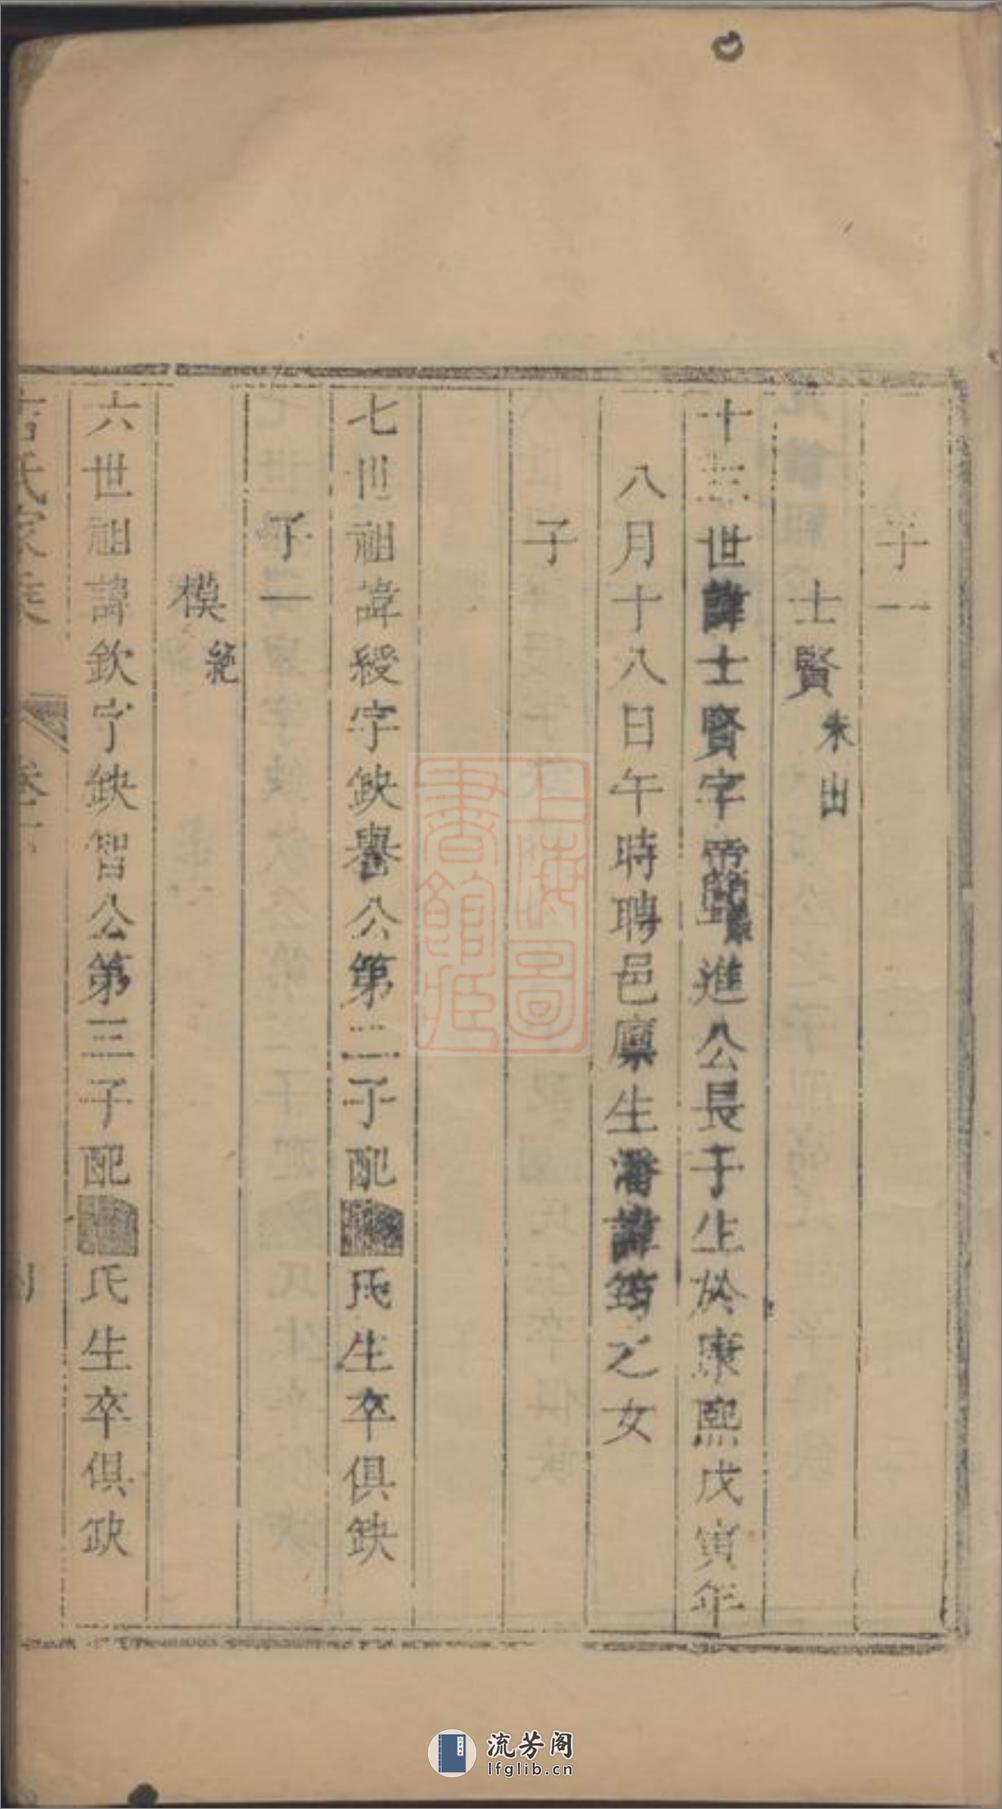 子一
士賢 朱出
十三世諱士賢字 進公長子生於康熙戊寅年
八月十八日午時聘邑廩生潘諱筠之女
子
七世祖諱綬字缺譽公第二子配 氏生卒俱缺
子一
模 統
六世祖諱欽字缺智公第三子配 氏生卒俱缺
氏家乘 卷
上海圖書館藏
流芳阁
lfglib.cn